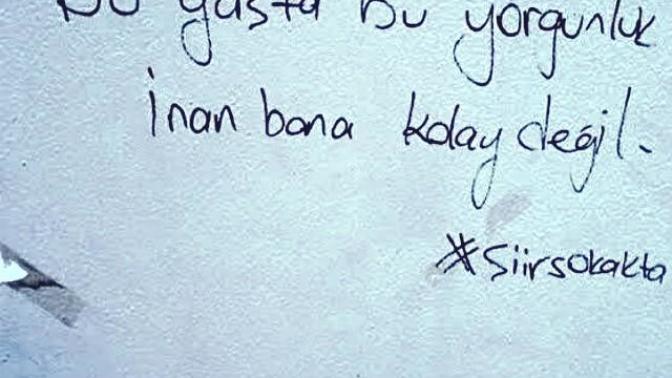 Bu yaşta bu yorgunluk
İnan bana kolay değil.
#şiirsokakta